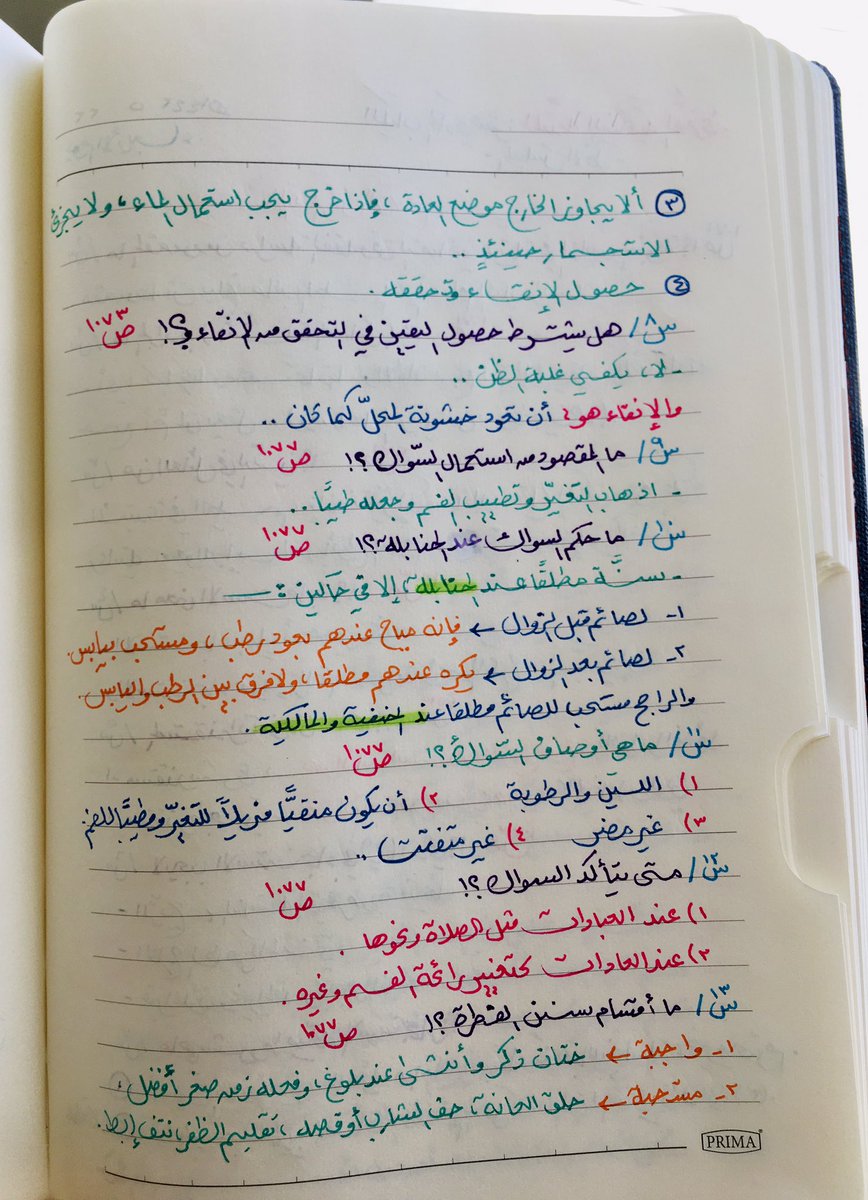 ③ ألا يجاوز الخارج موضع العادة، فإذا خرج يجب استعمال الماء، ولا يجزئ
الاستجمار حينئذٍ ..
④ حصول الإنقاء وتحققه .
س٨/ هل يشترط حصول اليقين في التحقق من الإنقاء ؟! ص١٠٧٣
- لا، يكفي غلبة الظن ..
والإنقاء هو: أن تعود خشونة المحلّ كما كان ..
س٩/ ما المقصود من استعمال السّواك ؟! ص١٠٧٧
- اذهاب التغيّر وتطييب الفم وجعله طيبًا ..
س١٠/ ما حكم السواك عند الحنابلة ؟! ص١٠٧٧
- سنَّة مطلقًا عند الحنابله، إلا في حالين :
١- لصائم قبل الزوال ← فإنه مباح عندهم بعود رطب، ومستحب بيابس.
٢- لصائم بعد الزوال ← يكره عندهم مطلقا، ولا فرق بين الرطب واليابس.
والراجح مستحب للصائم مطلقا عند الحنفية والمالكية .
س١١/ ما هي أوصاف السّواك ؟! ص١٠٧٧
١) اللين والرطوبة ٢) أن يكون منقيًّا مزيلاً للتغيّر ومطيبًا للفم.
٣) غير مضر ٤) غير متفتت ..
س١٢/ متى يتأكد السواك ؟! ص١٠٧٧
١) عند العبادات مثل الصلاة ونحوها .
٢) عند العادات كتغيير رائحة الفم وغيره .
س١٣/ ما أقسام سنن الفطرة ؟! ص١٠٧٧
١- واجبة ← ختان ذكر وأنثى عند بلوغ، وفعله زمن صغر أفضل .
٢- مستحبة ← حلق العانة، حف الشارب أو قصه، تقليم الظفر، نتف إبط.
PRIMA